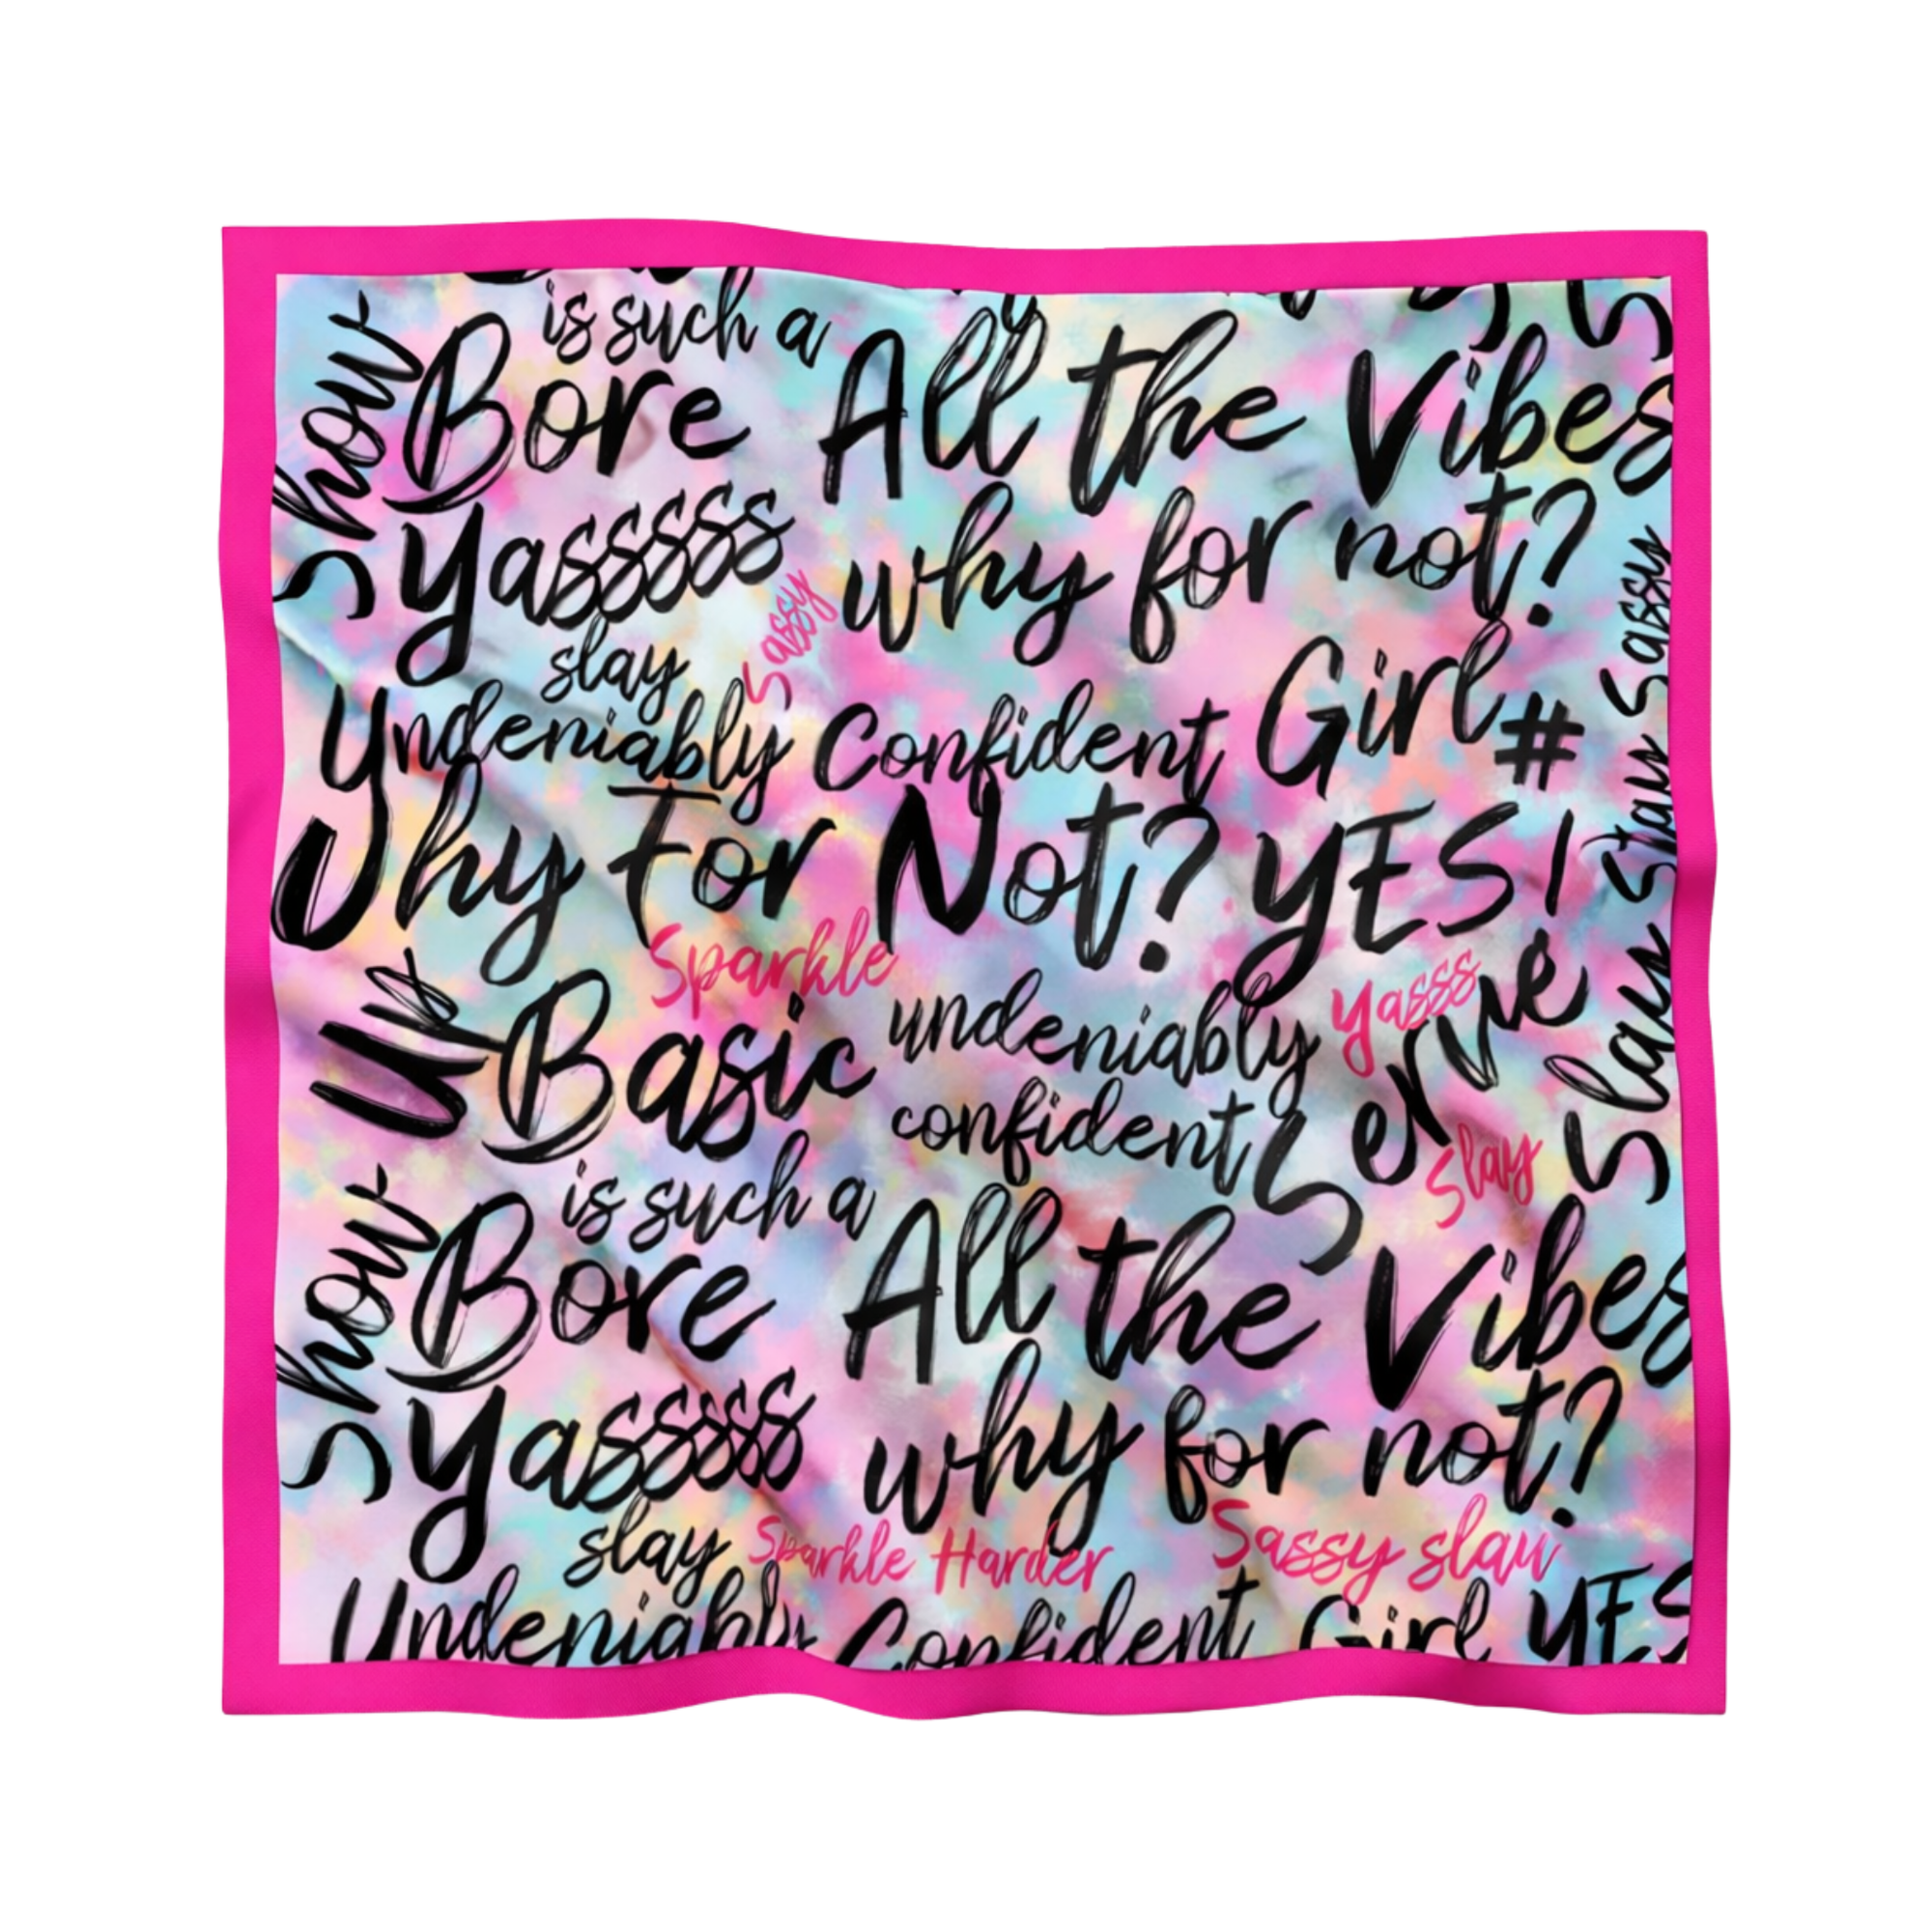 is such a
Show
Bore
All the Vibes
Yasssss
why for not?
Sassy
Sassy
slay
Undeniably Confident Girl
#
hy For Not? YES!
Slay
Sparkle
Up
Basic
undeniably
Yasss
confident
Serve
Slay
Slay
is such a
Show
Bore
All the Vibes
Yasssss
why for not?
slay
Sparkle Harder
Sassy slay
Undeniably Confident Girl YES